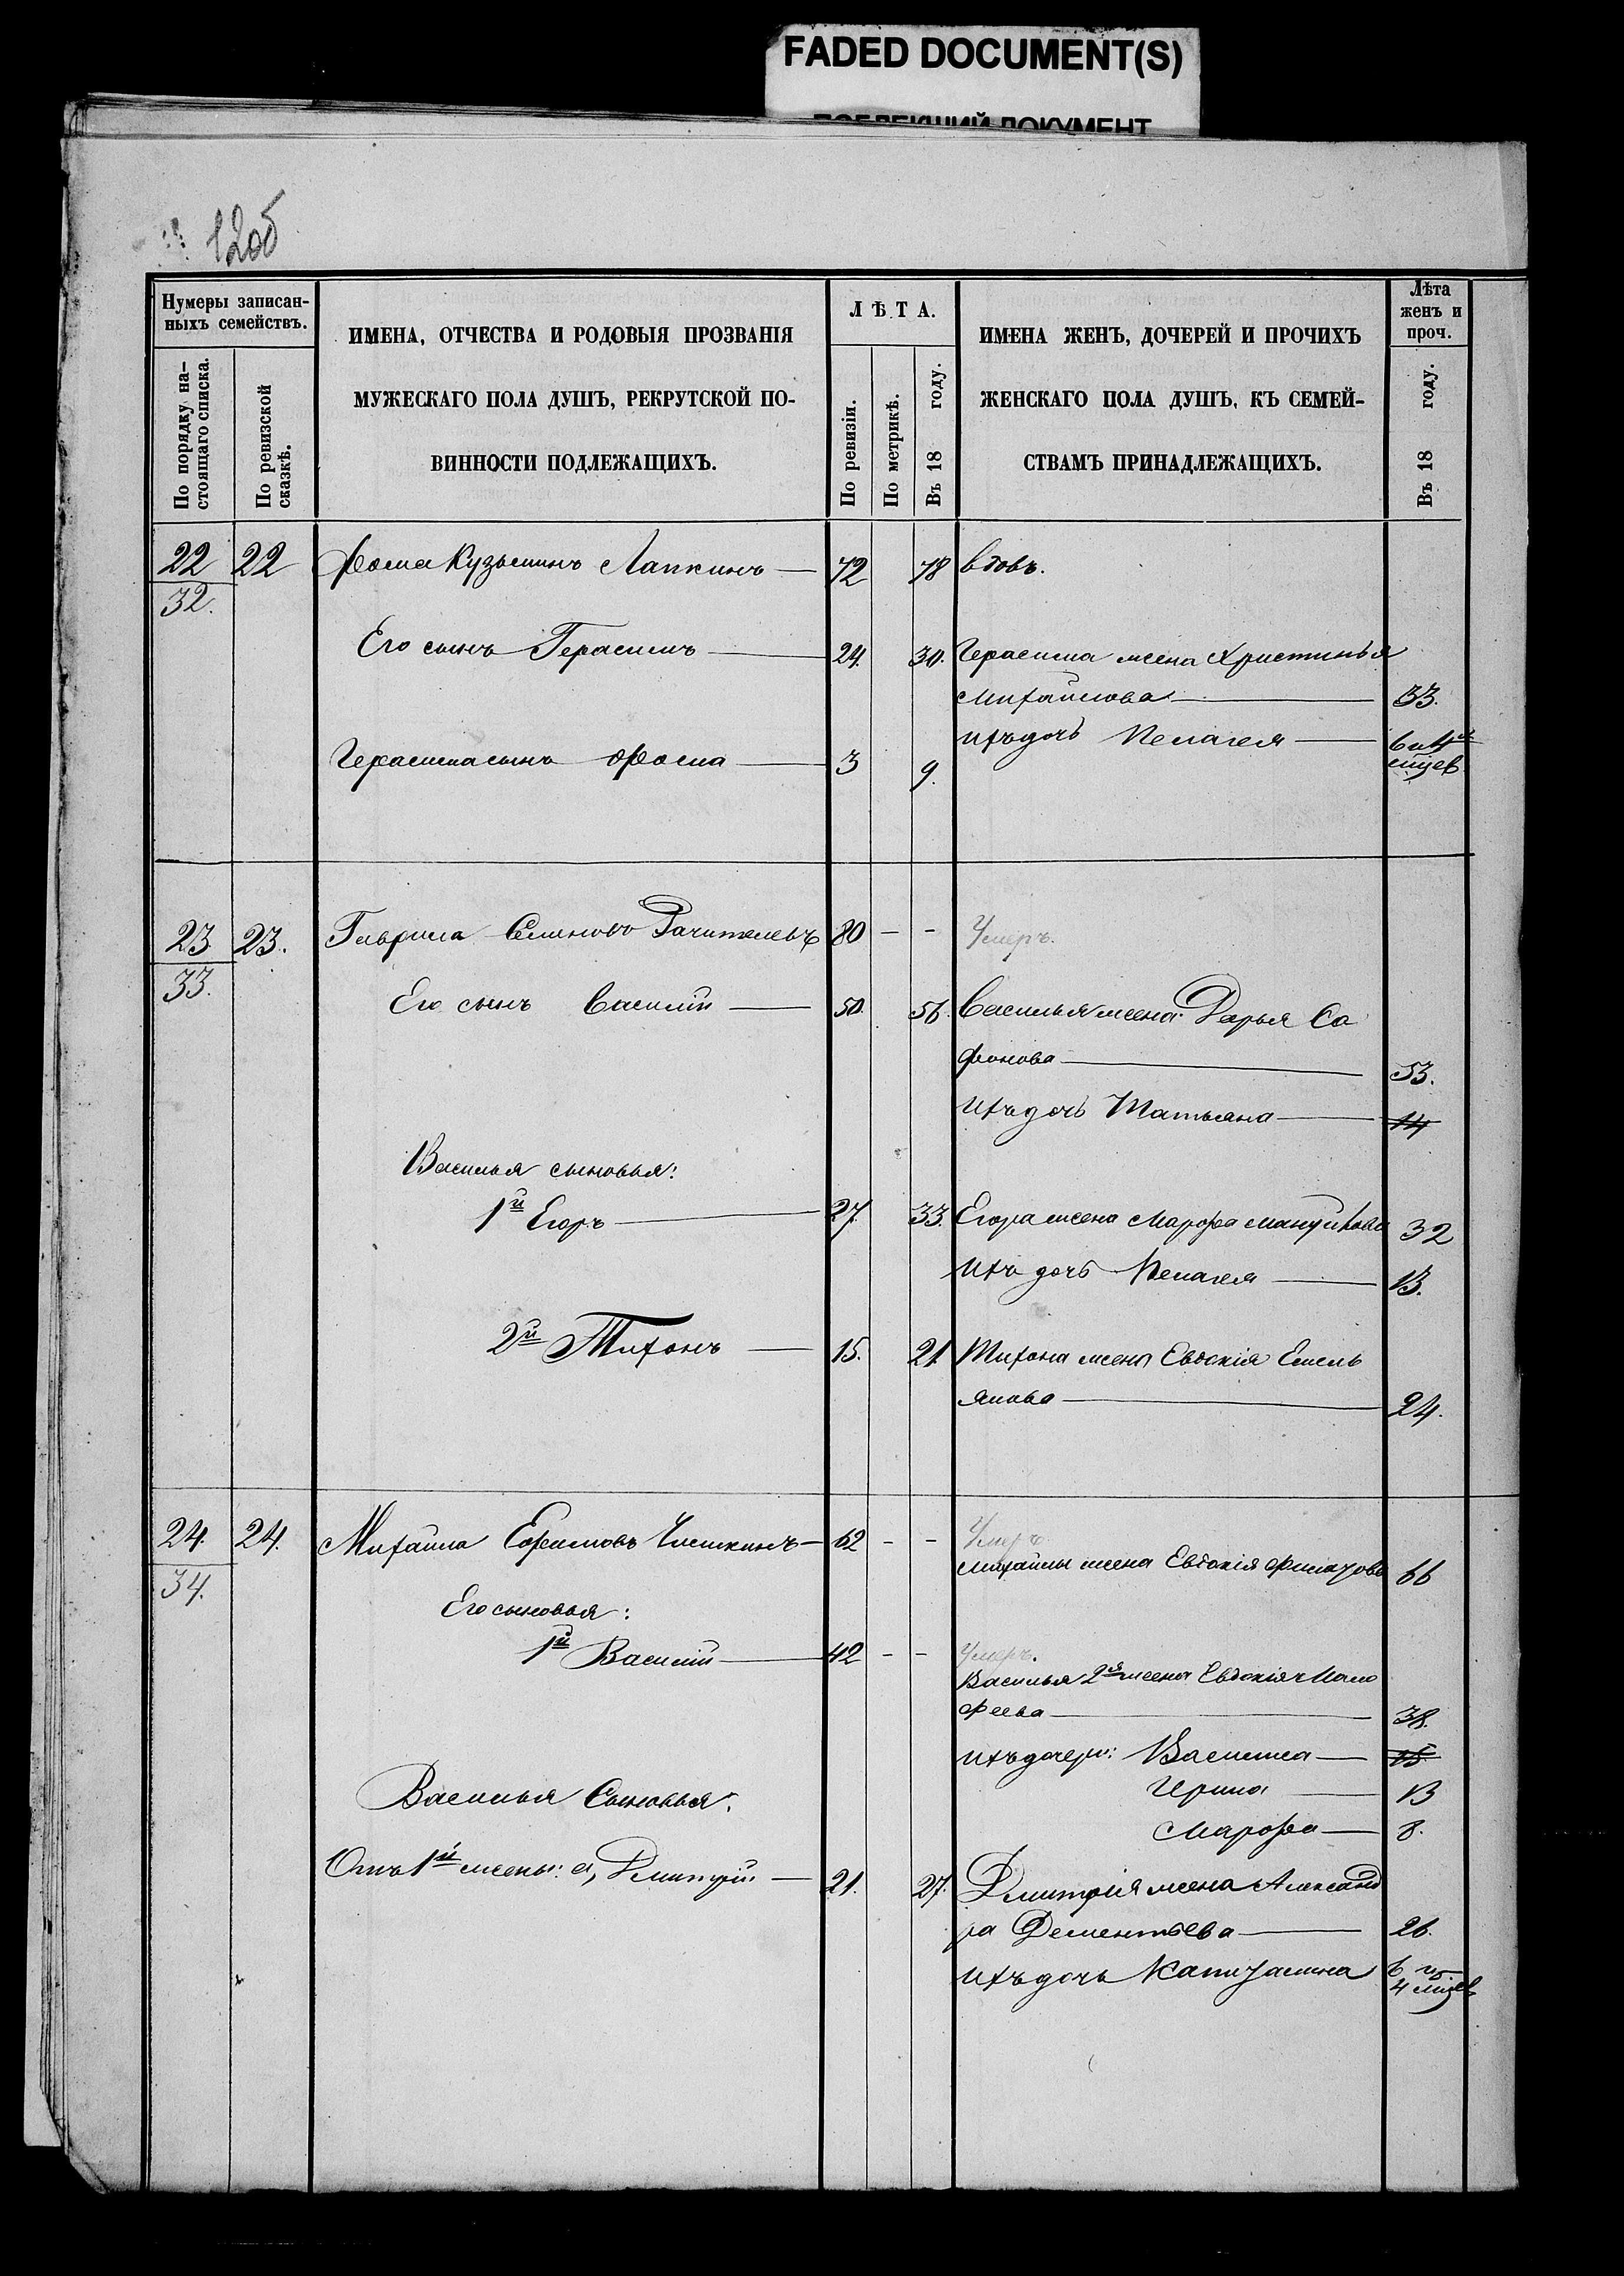 FADED DOCUMENT(S)
ПОБЛЕКШИЙ ДОКУМЕНТ
12об
Нумеры записан-
ныхъ семействъ.
По порядку на-
стоящаго списка.
По ревизской
сказкѣ.
ИМЕНА, ОТЧЕСТВА И РОДОВЫЯ ПРОЗВАНІЯ
МУЖЕСКАГО ПОЛА ДУШЪ, РЕКРУТСКОЙ ПО-
ВИННОСТИ ПОДЛЕЖАЩИХЪ.
ЛѢТА.
По ревизіи.
По метрикѣ.
Въ 18 году.
ИМЕНА ЖЕНЪ, ДОЧЕРЕЙ И ПРОЧИХЪ
ЖЕНСКАГО ПОЛА ДУШЪ, КЪ СЕМЕЙ-
СТВАМЪ ПРИНАДЛЕЖАЩИХЪ.
Лѣта
женъ и
проч.
Въ 18 году.
22 22 Фома Кузьминъ Лапкинъ — 72 78 вдовъ.
32.
Его сынъ Герасимъ — 24. 30. Герасима жена Христинья
Михайлова — 33.
ихъ дочь Пелагея — 6 и 4
мцев
Герасима сынъ Фома — 3 9.
23 23. Гаврила Семеновъ Рачителевъ 80 - - Умеръ.
33.
Его сынъ Василій — 50. 56. Василья жена Дарья Са
фонова — 53.
ихъ дочь Татьяна — 14
Василья сыновья:
1й Егоръ — 27. 33. Егора жена Марфа 32
ихъ дочь Пелагея — 13.
2й Тихонъ — 15. 21 Тихона жена Евдокія Емель
янова — 24.
24. 24. Михайла Ефимовъ — 62 - - Умеръ.
34.
Михайлы жена Евдокія Филатова 66
Его сыновья:
1й Василій — 42 - - Умеръ.
Василья 2я жена Евдокія Мало
феева — 38.
ихъ дочери: Василиса — 15
Ирина — 13
Марфа — 8.
Василья Сыновья:
Отъ 1й жены: а, Дмитрій — 21. 27. Дмитрія жена Александ
ра Дементьева — 26.
ихъ дочь Капитолина 6 и
4 мцев